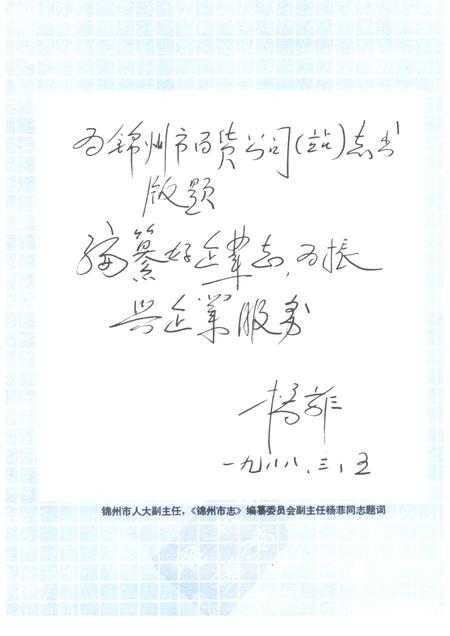 为锦州市百货公司(站)志书
版题
编纂好企业志,为振
兴企業服务
杨菲
一九八八.三.五
锦州市人大副主任,《锦州市志》编纂委员会副主任杨菲同志题词